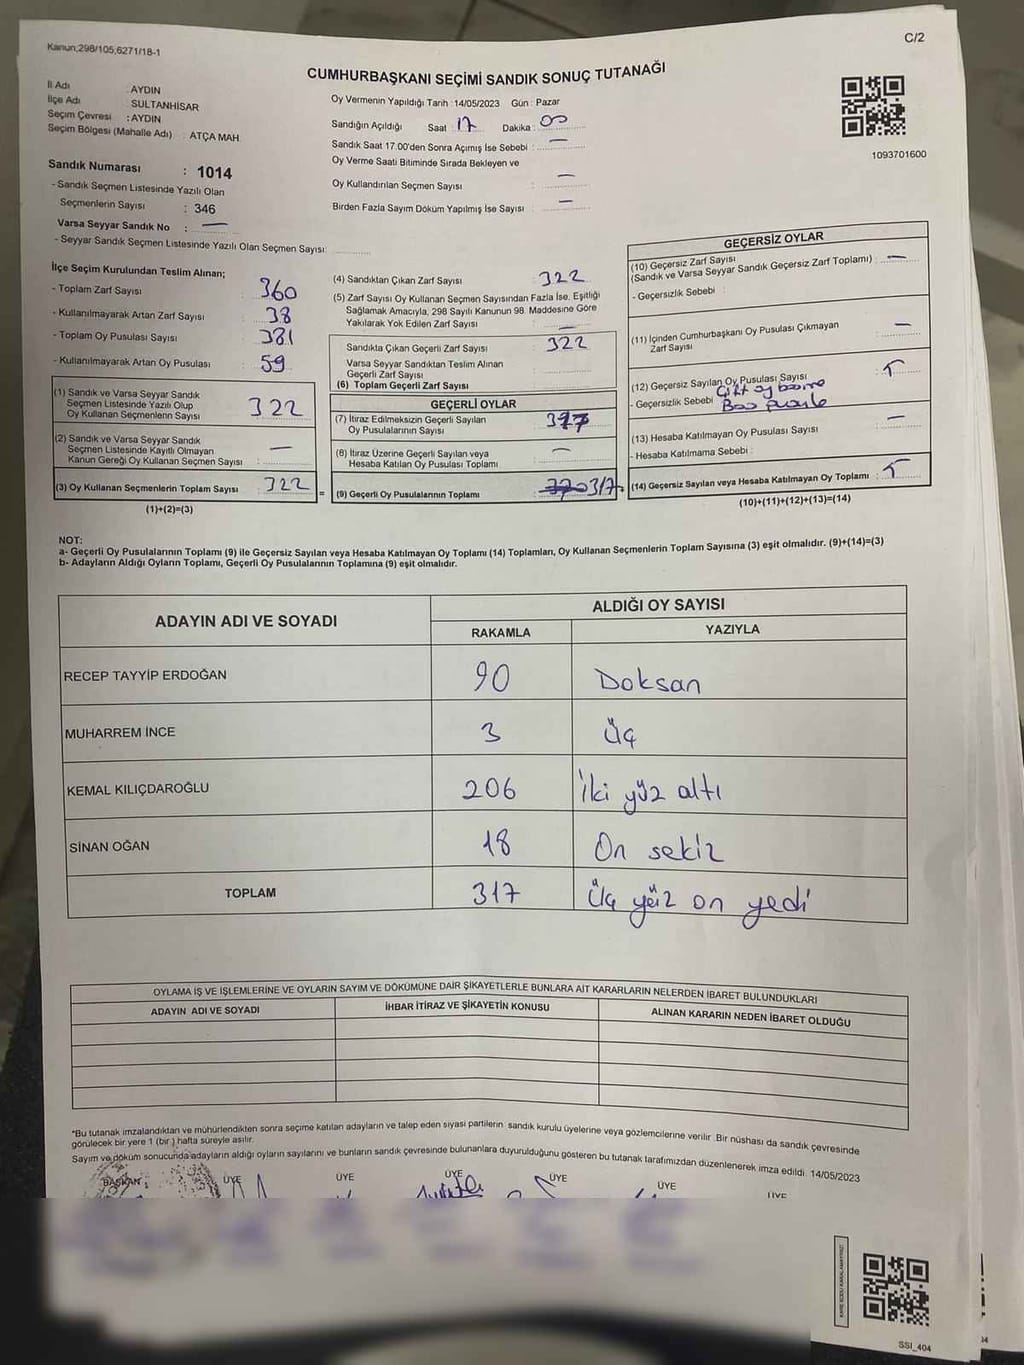 Kanun;298/105,6271/18-1
C/2
CUMHURBAŞKANI SEÇİMİ SANDIK SONUÇ TUTANAĞI
İl Adı : AYDIN
İlçe Adı : SULTANHİSAR
Seçim Çevresi : AYDIN
Seçim Bölgesi (Mahalle Adı) : ATÇA MAH.
Oy Vermenin Yapıldığı Tarih :14/05/2023 Gün : Pazar
Sandığın Açıldığı Saat : 17 Dakika : 00
Sandık Saat 17.00'den Sonra Açımış İse Sebebi : —
Oy Verme Saati Bitiminde Sırada Bekleyen ve
Oy Kullandırılan Seçmen Sayısı : —
Birden Fazla Sayım Döküm Yapılmış İse Sayısı : —
1093701600
Sandık Numarası : 1014
- Sandık Seçmen Listesinde Yazılı Olan
Seçmenlerin Sayısı : 346
Varsa Seyyar Sandık No : —
- Seyyar Sandık Seçmen Listesinde Yazılı Olan Seçmen Sayısı:
İlçe Seçim Kurulundan Teslim Alınan;
- Toplam Zarf Sayısı : 360
- Kullanılmayarak Artan Zarf Sayısı : 38
- Toplam Oy Pusulası Sayısı : 381
- Kullanılmayarak Artan Oy Pusulası : 59
(1) Sandık ve Varsa Seyyar Sandık
Seçmen Listesinde Yazılı Olup
Oy Kullanan Seçmenlerin Sayısı : 322
(2) Sandık ve Varsa Seyyar Sandık
Seçmen Listesinde Kayıtlı Olmayan
Kanun Gereği Oy Kullanan Seçmen Sayısı : —
(3) Oy Kullanan Seçmenlerin Toplam Sayısı : 322
(1)+(2)=(3)
(4) Sandıktan Çıkan Zarf Sayısı : 322
(5) Zarf Sayısı Oy Kullanan Seçmen Sayısından Fazla İse, Eşitliği
Sağlamak Amacıyla, 298 Sayılı Kanunun 98. Maddesine Göre
Yakılarak Yok Edilen Zarf Sayısı : —
Sandıkta Çıkan Geçerli Zarf Sayısı : 322
Varsa Seyyar Sandıktan Teslim Alınan
Geçerli Zarf Sayısı
(6) Toplam Geçerli Zarf Sayısı
GEÇERLİ OYLAR
(7) İtiraz Edilmeksizin Geçerli Sayılan
Oy Pusulalarının Sayısı : 317
(8) İtiraz Üzerine Geçerli Sayılan veya
Hesaba Katılan Oy Pusulası Toplamı : —
= (9) Geçerli Oy Pusulalarının Toplamı : 320 317 +
GEÇERSİZ OYLAR
(10) Geçersiz Zarf Sayısı
(Sandık ve Varsa Seyyar Sandık Geçersiz Zarf Toplamı) : —
- Geçersizlik Sebebi :
(11) İçinden Cumhurbaşkanı Oy Pusulası Çıkmayan
Zarf Sayısı : —
(12) Geçersiz Sayılan Oy Pusulası Sayısı : 5
- Geçersizlik Sebebi : Çift oy basma
Boş pusula
(13) Hesaba Katılmayan Oy Pusulası Sayısı : —
- Hesaba Katılmama Sebebi :
(14) Geçersiz Sayılan veya Hesaba Katılmayan Oy Toplamı : 5
(10)+(11)+(12)+(13)=(14)
NOT:
a- Geçerli Oy Pusulalarının Toplamı (9) ile Geçersiz Sayılan veya Hesaba Katılmayan Oy Toplamı (14) Toplamları, Oy Kullanan Seçmenlerin Toplam Sayısına (3) eşit olmalıdır. (9)+(14)=(3)
b- Adayların Aldığı Oyların Toplamı, Geçerli Oy Pusulalarının Toplamına (9) eşit olmalıdır.
ADAYIN ADI VE SOYADI
ALDIĞI OY SAYISI
RAKAMLA YAZIYLA
RECEP TAYYİP ERDOĞAN 90 Doksan
MUHARREM İNCE 3 Üç
KEMAL KILIÇDAROĞLU 206 İki yüz altı
SİNAN OĞAN 18 On sekiz
TOPLAM 317 Üç yüz on yedi
OYLAMA İŞ VE İŞLEMLERİNE VE OYLARIN SAYIM VE DÖKÜMÜNE DAİR ŞİKAYETLERLE BUNLARA AİT KARARLARIN NELERDEN İBARET BULUNDUKLARI
ADAYIN ADI VE SOYADI İHBAR İTİRAZ VE ŞİKAYETİN KONUSU ALINAN KARARIN NEDEN İBARET OLDUĞU
*Bu tutanak imzalandıktan ve mühürlendikten sonra seçime katılan adayların ve talep eden siyasi partilerin sandık kurulu üyelerine veya gözlemcilerine verilir .Bir nüshası da sandık çevresinde
görülecek bir yere 1 (bir ) hafta süreyle asılır.
Sayım ve döküm sonucunda adayların aldığı oyların sayılarını ve bunların sandık çevresinde bulunanlara duyurulduğunu gösteren bu tutanak tarafımızdan düzenlenerek imza edildi. 14/05/2023
BAŞKAN ÜYE ÜYE ÜYE ÜYE ÜYE ÜYE
SSI_404